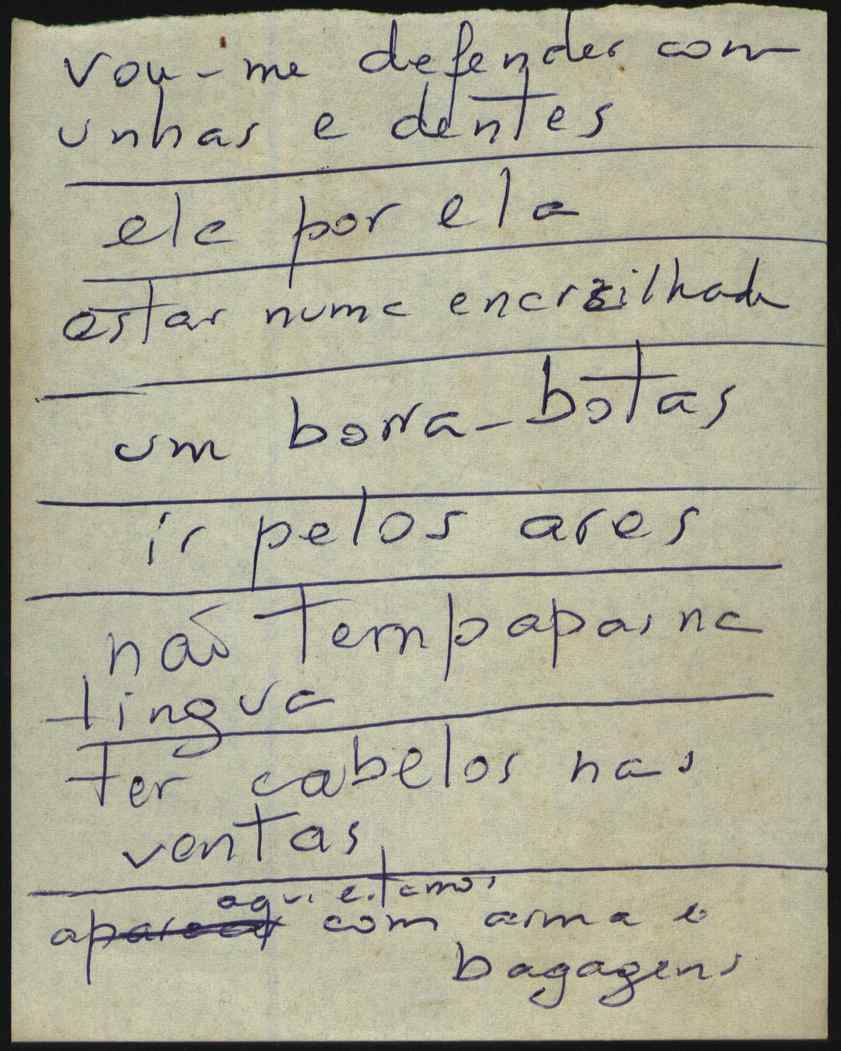 vou-me defender com
unhas e dentes
ela por ela
estar numa encrzilhada
um borra-botas
ir pelos ares
não tem papas na
lingua
ter cabelos nas
ventas
aqui estamos
com arma e
bagagens